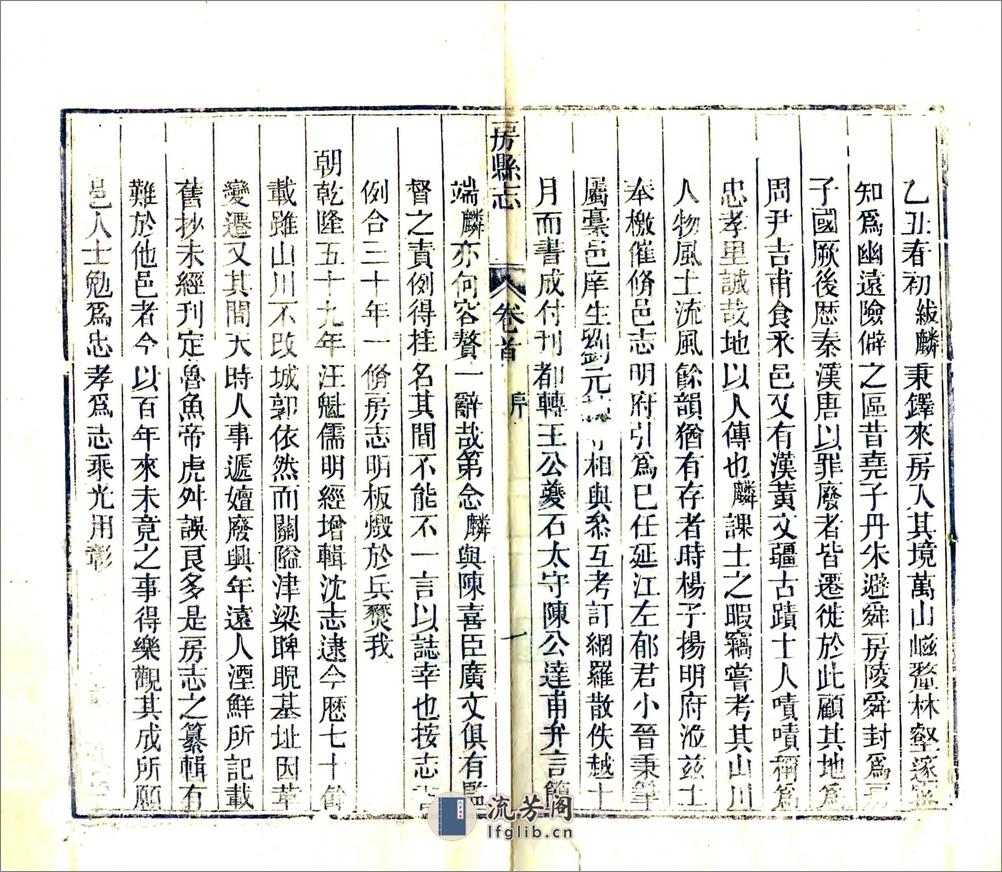 乙丑春初紱麟秉鐸來房入其境萬山巑蝥林壑邃密
知爲幽遠險僻之區昔堯子丹朱避舜房陵舜封爲房
子國厥後歴秦漢唐以罪廢者皆遷徙於此顧其地爲
周尹吉甫食采邑又有漢黃文疆古蹟士人嘖嘖稱爲
忠孝里誠哉地以人傳也麟課士之暇竊嘗考其山川
人物風土流風餘韻猶有存者時楊子揚明府涖兹土
奉檄催脩邑志明府引爲己任延江左郁君小晉秉筆
屬藁邑庠生劉元相與叅互考訂網羅散佚越十
月而書成付刊都轉王公夔石太守陳公達甫弁言簡
房縣志 卷首 序 一
端麟亦何容贅一辭哉第念麟與陳喜臣廣文俱有監
督之責例得挂名其間不能不一言以誌幸也按志
例合三十年一脩房志明板燬於兵燹我
朝乾隆五十九年汪魁儒明經增輯沈志逮今歷七十餘
載雖山川不改城郭依然而關隘津梁睥睨基址因革
變遷又其間天時人事遞嬗廢興年遠人湮鮮所記載
舊抄未經刊定魯魚帝虎舛誤良多是房志之纂輯有
難於他邑者今以百年來未竟之事得樂觀其成所願
邑人士勉爲忠孝爲志乘光用彰
流芳阁
lfglib.cn